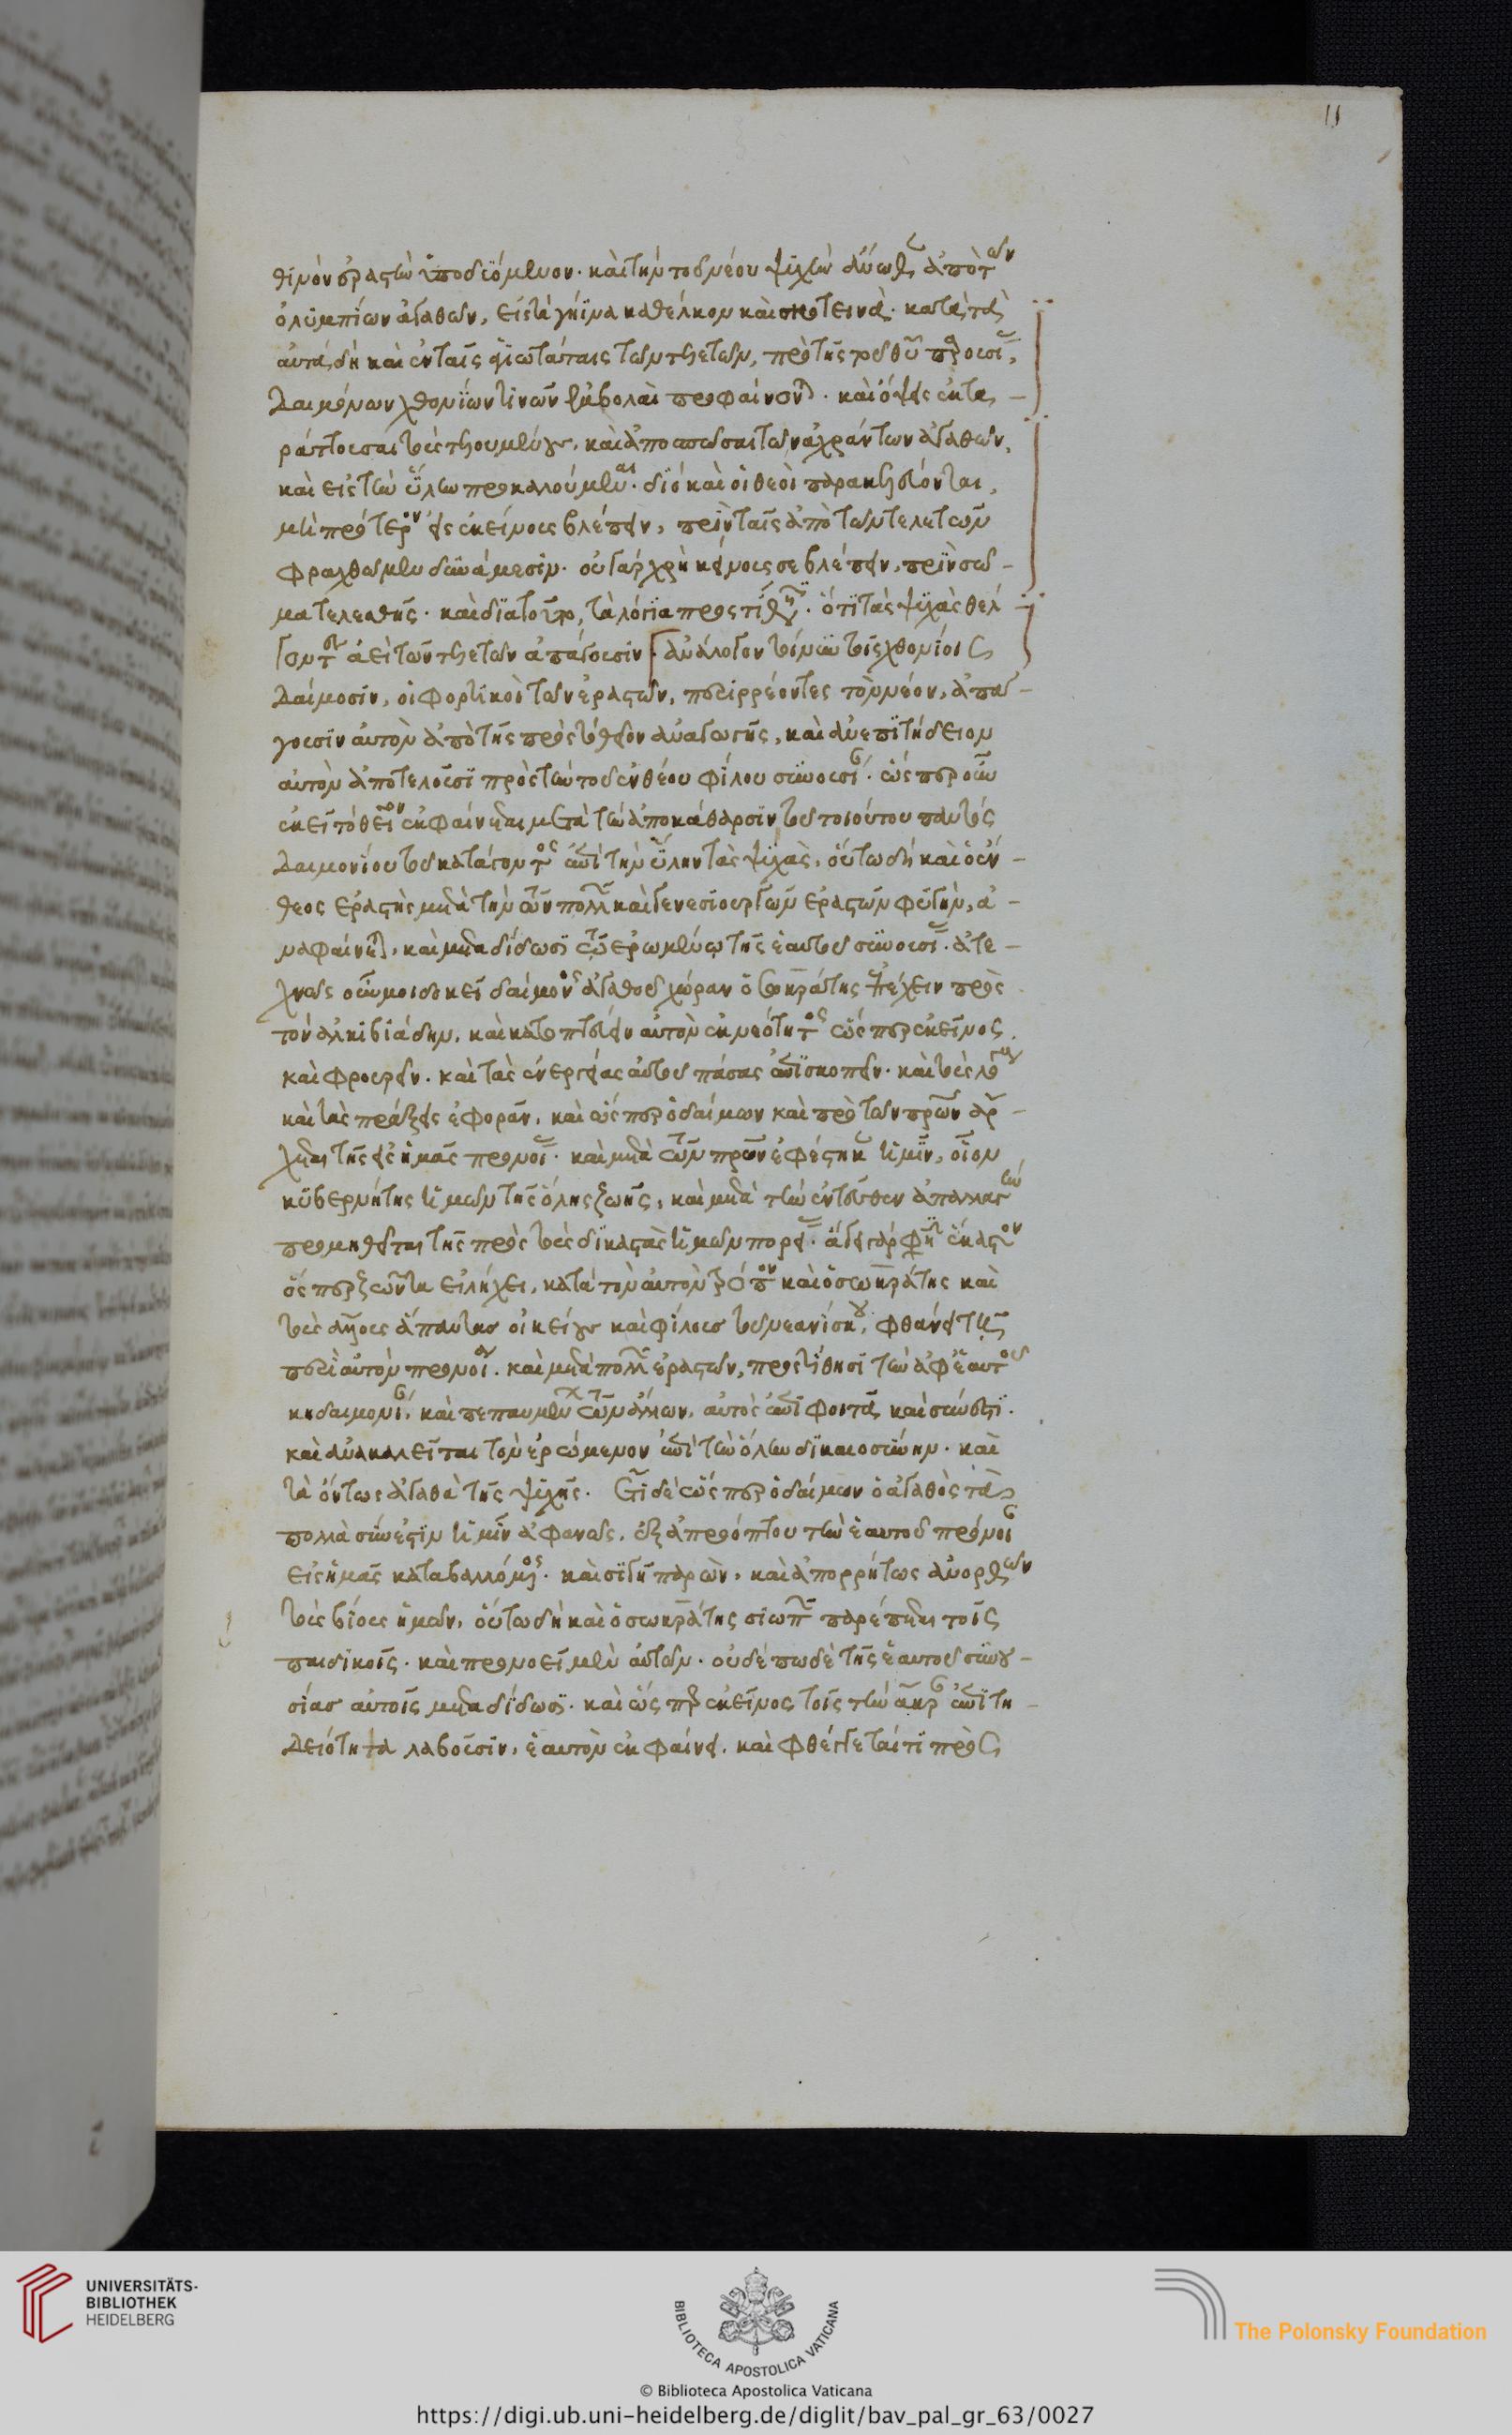 11
θυμὸν ἐραστὴν ὑποδυόμενον. καὶ τὴν τοῦ νέου ψυχὴν ἄνωθεν ἀπὸ τῶν
ὀλυμπίων ἀγαθῶν, εἰς τὰ γήϊνα καθέλκον καὶ σκοτεινά. κατὰ τὰ
αὐτὰ δὴ καὶ ἐν ταῖς ἁγιωτάταις τῶν τελετῶν, πρὸ τῆς τοῦ θεοῦ παρουσίας,
δαιμόνων χθονίων τινῶν ἐμβολαὶ προφαίνονται. καὶ ὄψεις ἐκτα-
ράττουσαι τοὺς τελουμένους, καὶ ἀποσπῶσαι τῶν ἀχράντων ἀγαθῶν,
καὶ εἰς τὴν ὕλην προκαλούμεναι. διὸ καὶ οἱ θεοὶ παρακελεύονται,
μὴ πρότερον εἰς ἐκείνους βλέπειν, πρὶν ταῖς ἀπὸ τῶν τελετῶν
φραχθῶμεν δυνάμεσιν. οὐ γὰρ χρὴ κείνους σε βλέπειν, πρὶν σῶ-
μα τελεσθῇς. καὶ διὰ τοῦτο, τὰ λόγια προστίθησιν. ὅτι τὰς ψυχὰς θέλ-
γοντες ἀεὶ τῶν τελετῶν ἀπάγουσιν. ἀνάλογον τοίνυν τοῖς χθονίοις
δαίμοσιν, οἱ φορτικοὶ τῶν ἐραστῶν, περιρρέοντες τὸν νέον, ἀπά-
γουσιν αὐτὸν ἀπὸ τῆς πρὸς τὸ θεῖον ἀναγωγῆς, καὶ ἀνεπιτήδειον
αὐτὸν ἀποτελοῦσι πρὸς τὴν τοῦ ἐνθέου φίλου συνουσίαν. ὥσπερ οὖν
ἐκεῖ τὸ θεῖον ἐκφαίνεται μετὰ τὴν ἀποκάθαρσιν τοῦ τοιούτου παντὸς
δαιμονίου τοῦ κατάγοντος ἐπὶ τὴν ὕλην τὰς ψυχὰς, οὕτω δὴ καὶ ὁ ἔν-
θεος ἐραστὴς μετὰ τὴν τῶν πολλῶν καὶ γενεσιουργῶν ἐραστῶν φυγὴν, ἀ-
ναφαίνεται, καὶ μεταδίδωσι τῷ ἐρωμένῳ τῆς ἑαυτοῦ συνουσίας. ἀτε-
χνῶς οὖν μοι δοκεῖ δαίμονος ἀγαθοῦ χώραν ὁ Σωκράτης ἐπέχειν πρὸς
τὸν ἀλκιβιάδην. καὶ κατοπτεύειν αὐτὸν ἐκ νεότητος ὥσπερ ἐκεῖνος.
καὶ φρουρεῖν. καὶ τὰς ἐνεργείας αὐτοῦ πάσας ἐπισκοπεῖν. καὶ τοὺς λόγους
καὶ τὰς πράξεις ἐφορᾶν. καὶ ὥσπερ ὁ δαίμων καὶ πρὸ τῶν πατέρων ἄρ-
χεται τῆς εἰς ἡμᾶς προνοίας. καὶ μετὰ τῶν πατέρων ἐφέστηκεν ἡμῖν, οἷον
κυβερνήτης ἡμῶν τῆς ὅλης ζωῆς, καὶ μετὰ τὴν ἐντεῦθεν ἀπαλλαγὴν
προμηθεῖται τῆς πρὸς τοὺς δικαστὰς ἡμῶν πορείας. ἄγει γὰρ φησὶν ἕκαστον
ὅσπερ ζῶντα εἰλήχει, κατὰ τὸν αὐτὸν τρόπον καὶ ὁ σωκράτης καὶ
τοὺς ἄλλους ἅπαντας οἰκείους καὶ φίλους τοῦ νεανίσκου, φθάνει τῇ
περὶ αὐτὸν προνοίᾳ. καὶ μετὰ πολλῶν ἐραστῶν, προστίθησι τὴν ἀφ' ἑαυτοῦ
κηδεμονίαν, καὶ πεπαυμένων τῶν ἄλλων, αὐτὸς ἐπιφοιτᾷ καὶ σύνεστι.
καὶ ἀνακαλεῖται τὸν ἐρώμενον ἐπὶ τὴν ὅλην δικαιοσύνην. καὶ
τὰ ὄντως ἀγαθὰ τῆς ψυχῆς. ἔτι δὲ ὥσπερ ὁ δαίμων ὁ ἀγαθὸς τὰ
πολλὰ σύνεστιν ἡμῖν ἀφανῶς, ἐξ ἀπρόπτου τὴν ἑαυτοῦ πρόνοιαν
εἰς ἡμᾶς καταβαλλόμενος. καὶ σιγῇ παρὼν, καὶ ἀπορρήτως ἀνορθῶν
τοὺς βίους ἡμῶν, οὕτω δὴ καὶ ὁ σωκράτης σιωπῇ παρέπεται τοῖς
παιδικοῖς. καὶ προνοεῖ μὲν αὐτῶν. οὐδέπω δὲ τῆς ἑαυτοῦ συνου-
σίας αὐτοῖς μεταδίδωσι. καὶ ὥσπερ ἐκεῖνος τοῖς τὴν ἄκραν ἐπιτη-
δειότητα λαβοῦσιν, ἑαυτὸν ἐκφαίνει, καὶ φθέγγεταί τι πρὸς
UNIVERSITÄTS-
BIBLIOTHEK
HEIDELBERG
BIBLIOTECA APOSTOLICA VATICANA
The Polonsky Foundation
© Biblioteca Apostolica Vaticana
https://digi.ub.uni-heidelberg.de/diglit/bav_pal_gr_63/0027